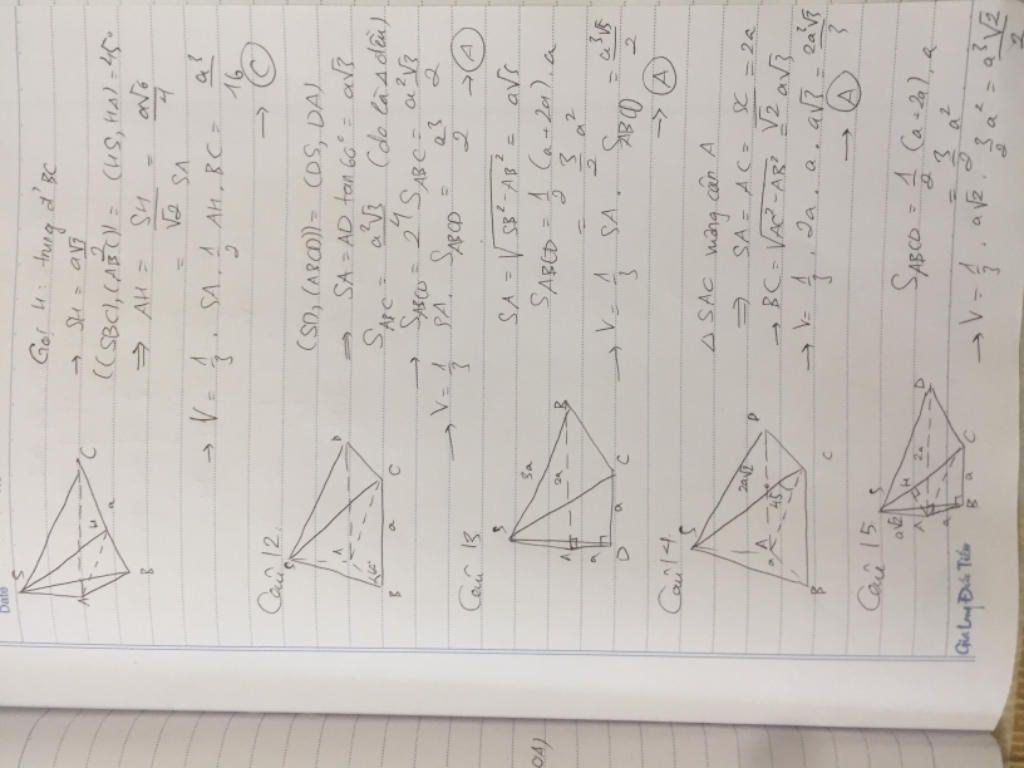 Date
Gọi H: trung đ' BC
→ SH = a√3/2
((SBC),(ABC)) = (HS, HA) = 45°
⇒ AH = SH/√2 = a√6/4
= SA
→ V = 1/3 . SA . 1/2 AH . BC = a³/16
→ C
S
A
B
H
a
C
Câu 12.
(SD, (ABCD)) = (DS, DA)
⇒ SA = AD tan 60° = a√3
S_ABC = a²√3/4 (do là Δ đều)
→ S_ABCD = 2 S_ABC = a²√3/2
→ V = 1/3 SA . S_ABCD = a³/2 → A
S
A
60°
B
a
C
D
Câu 13
SA = √(SB² - AB²) = a√5
S_ABCD = 1/2 (a + 2a) . a
= 3/2 a²
→ V = 1/3 SA . S_ABCD = a³√5/2
→ A
S
3a
A
2a
B
a
D
a
C
Câu 14.
Δ SAC vuông cân A
⇒ SA = AC = SC/√2 = 2a
→ BC = √(AC² - AB²) = a√3
→ V = 1/3 . 2a . a . a√3 = 2a³√3/3
→ A
S
2a√2
A
a
45°
B
C
D
Câu 15.
S_ABCD = 1/2 (a + 2a) . a
= 3/2 a²
→ V = 1/3 . a√2 . 3/2 a² = a³√2/2
S
a√2
A
H
2a
D
a
B
a
C
Gia Long Đức Tiến
OA)